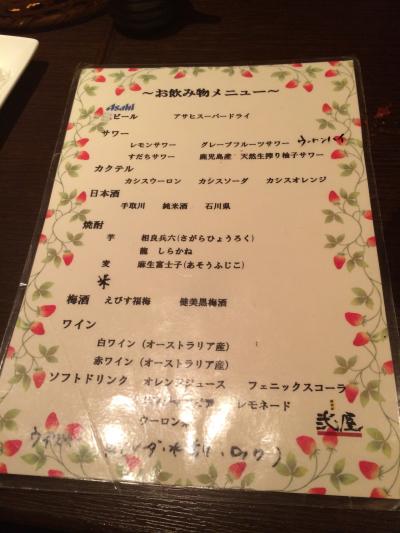 ～お飲み物メニュー～
Asahi
ビール アサヒスーパードライ
サワー
レモンサワー グレープフルーツサワー
すだちサワー 鹿児島産 天然生搾り柚子サワー
カクテル
カシスウーロン カシスソーダ カシスオレンジ
日本酒
手取川 純米酒 石川県
焼酎
芋 相良兵六(さがらひょうろく)
龍 しらかね
麦 麻生富士子(あそうふじこ)
米
梅酒 えびす福梅 健美黒梅酒
ワイン
白ワイン（オーストラリア産）
赤ワイン（オーストラリア産）
ソフトドリンク オレンジュース フェニックスコーラ
レモネード
ウーロン
弐屋